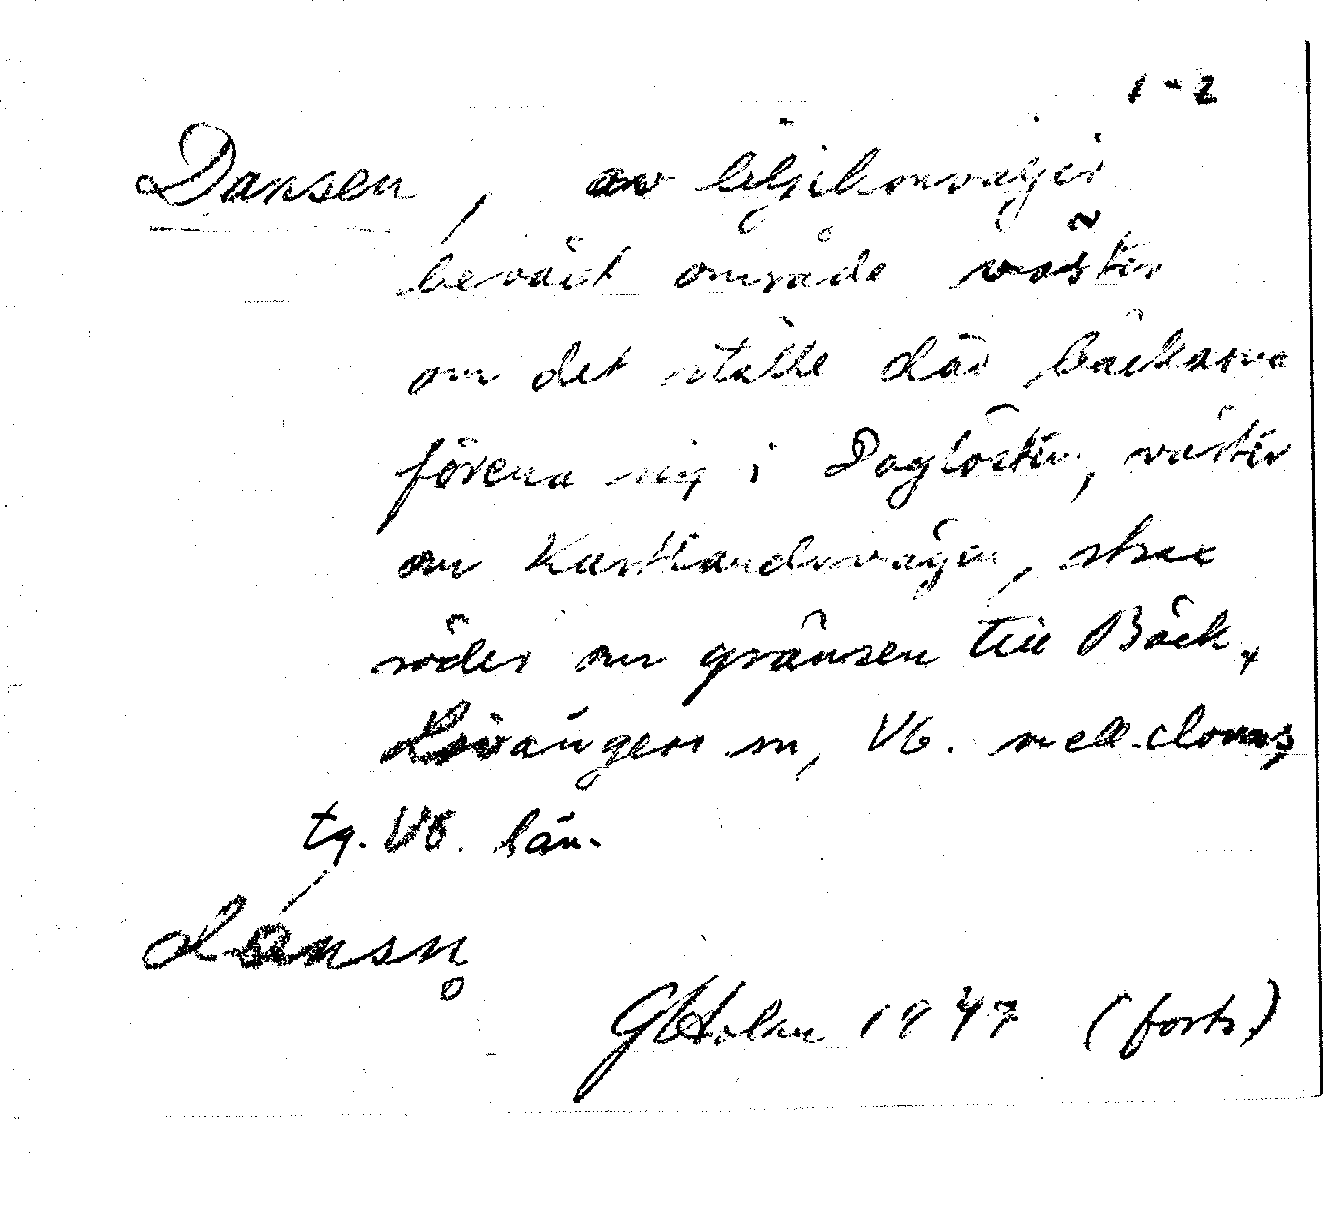 1-2
Dansen, av liljekonvaljer
beväxt område väster
om det ställe där bäckarna
förena sig i Daglöstен, väster
om Kastlandsvägen, strax
söder om gränsen till Bäck,
Lövångers sn, Vb. mell. doms,
tg. Vb. län.
dánsn̥
G Holm 1947 (forts)